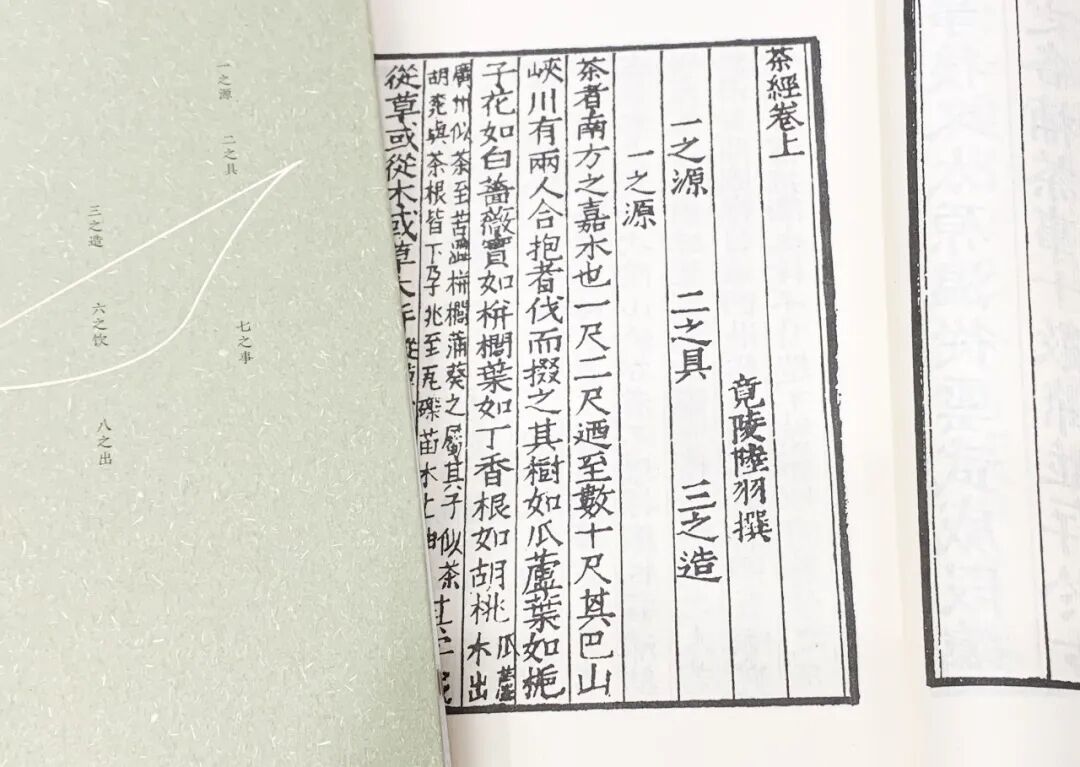 茶經卷上
竟陵陸羽撰
一之源 二之具 三之造
一之源
茶者南方之嘉木也一尺二尺迺至數十尺其巴山
峽川有兩人合抱者伐而掇之其樹如瓜蘆葉如梔
子花如白薔薇實如栟櫚葉如丁香根如胡桃
瓜蘆
木出
廣州似茶至苦澁栟櫚蒲葵之屬其子似茶
胡桃與茶根皆下孕兆至瓦礫苗木上抽
從草或從木或草木并
一之源
二之具
三之造
六之饮
七之事
八之出